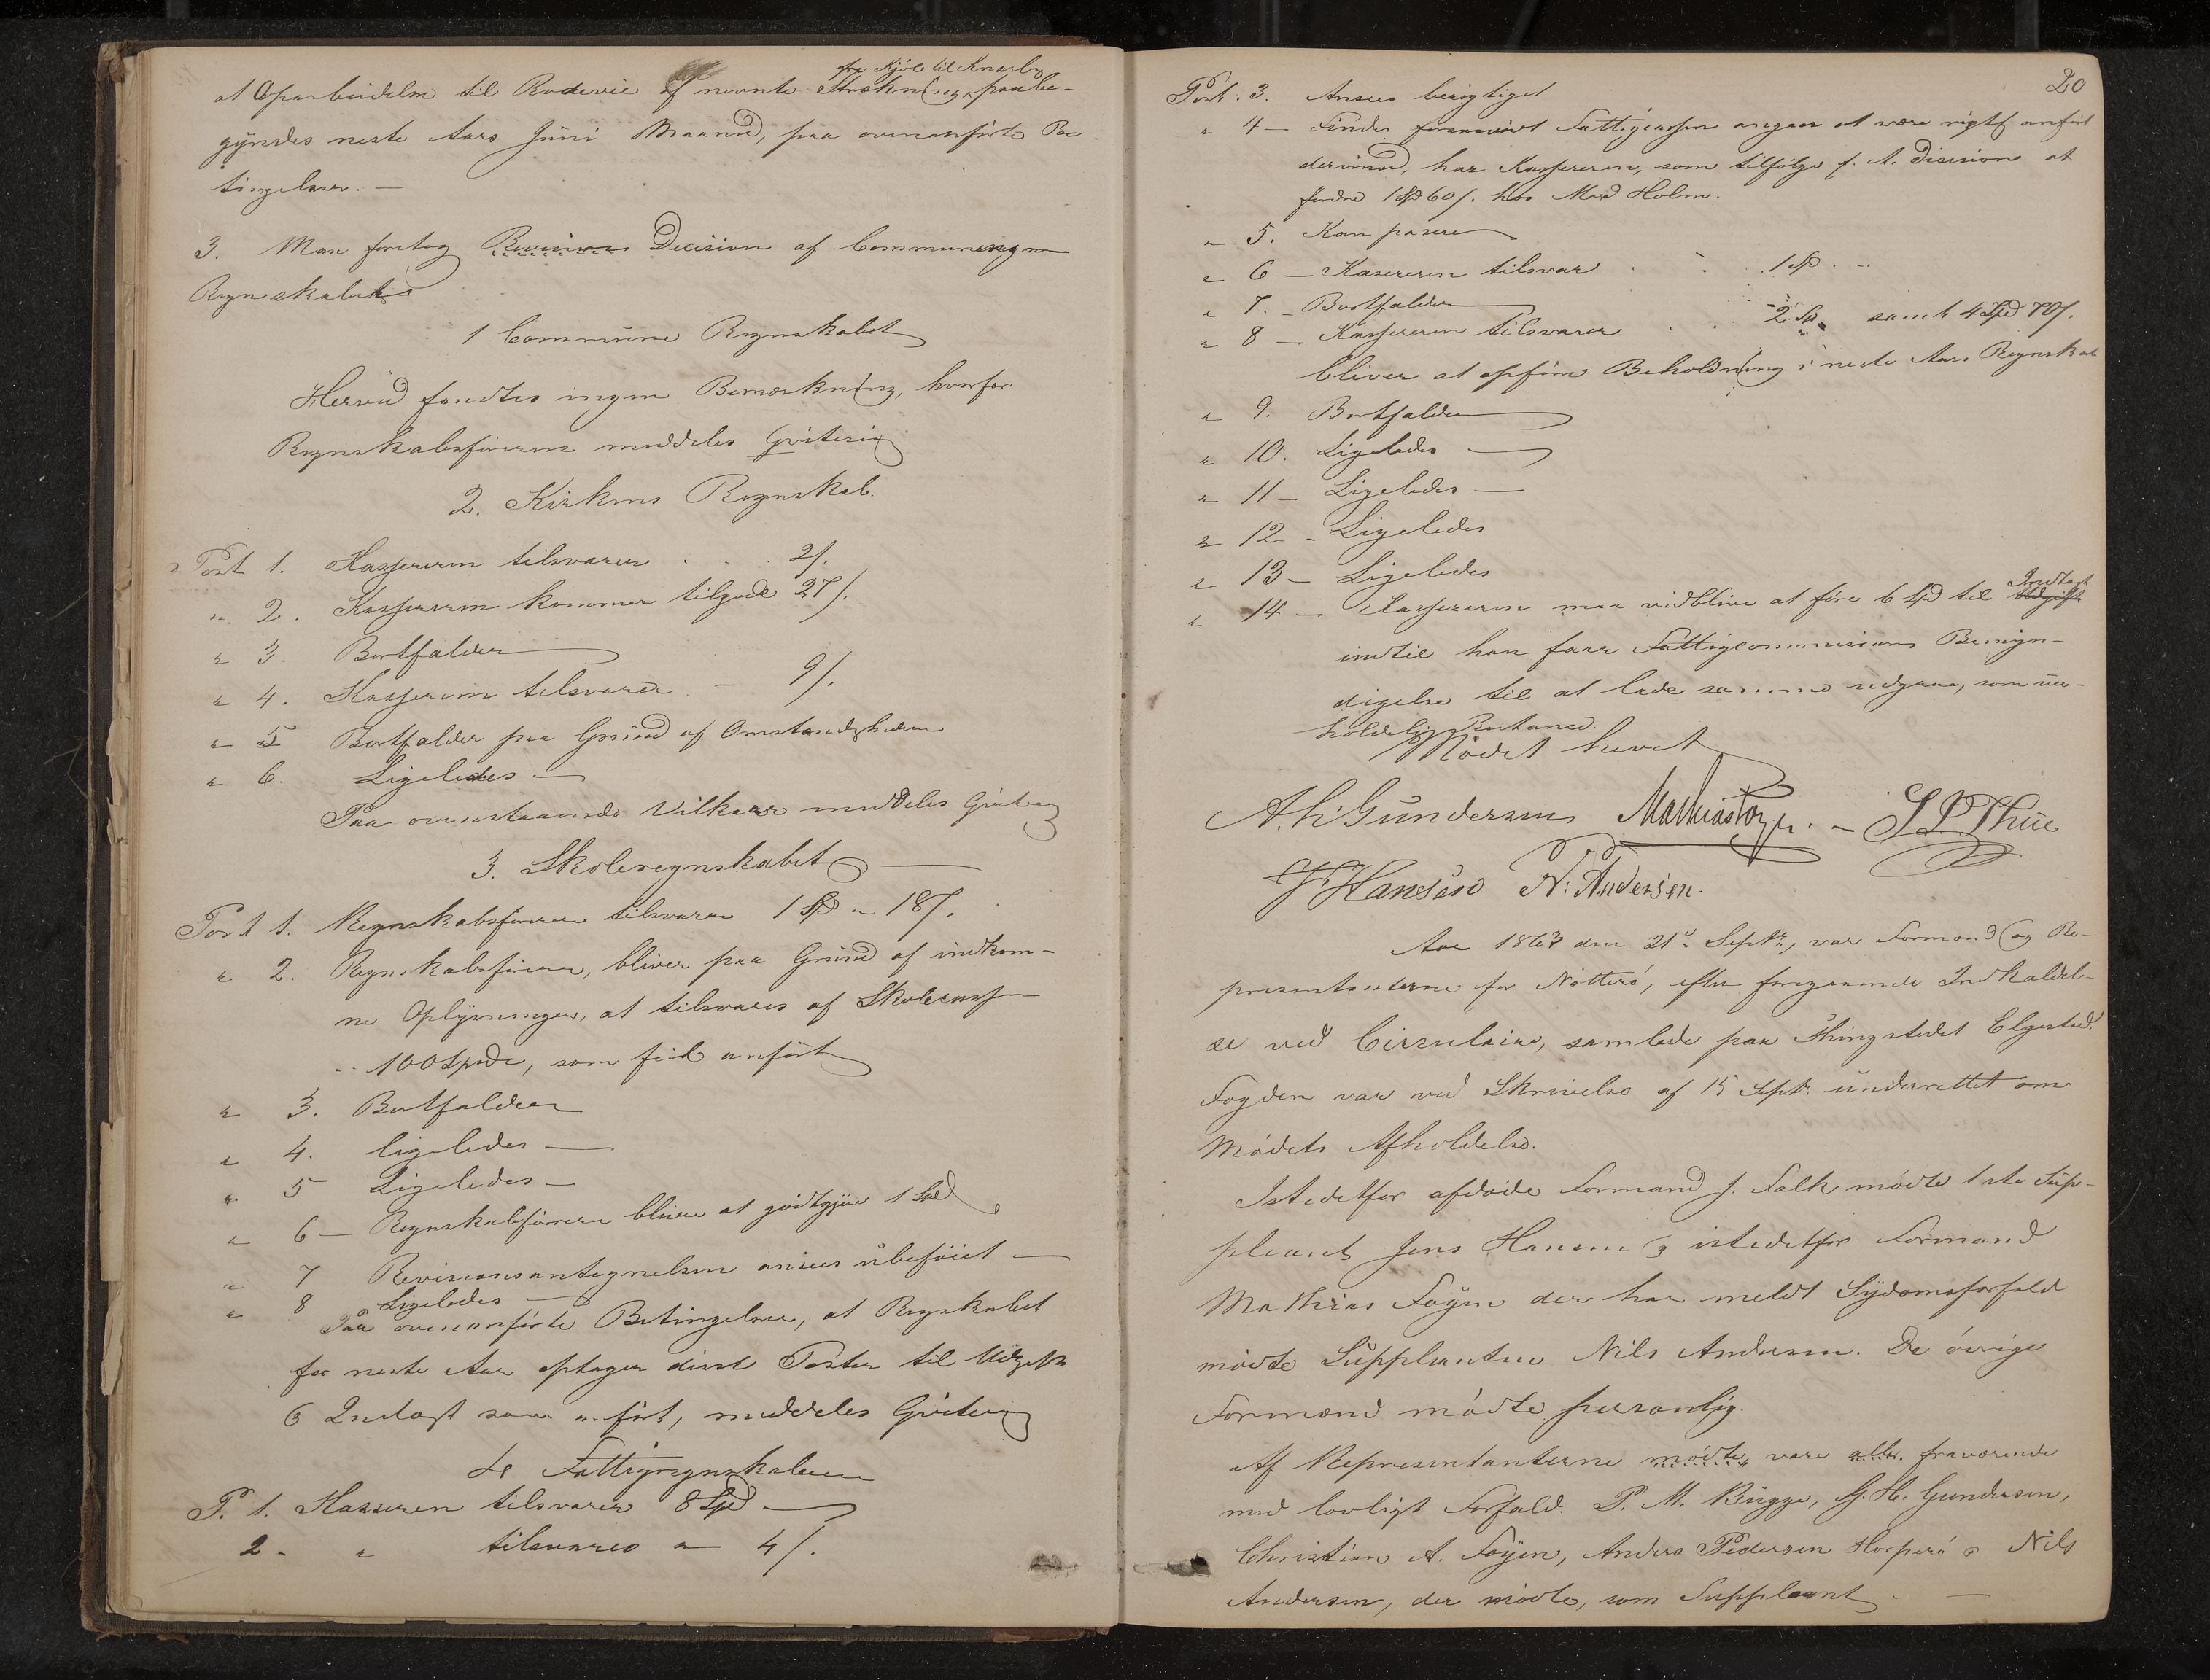 fra Kjöle til Knarbg
at Oparbeidelse til Rodeveie af nevnte Strekning paabe-
gyndes neste Aars Juni Maaned, paa ovenanförte Be-
tingelser. —
3. Man foretog Revisions Decision af Communens
Regnskaber
1 Commune Regnskabet
Herved fandtes ingen Bemærkning, hvorfor
Regnskabsföreren meddeles Qvitering
2. Kirkens Regnskab.
Post 1. Kassereren tilsvarer . . . 2/.
" 2. Kassereren kommer tilgode 27/.
" 3. Bortfalder
" 4. Kassereren tilsvarer — 9/.
" 5 Bortfalder paa Grund af Omstændigheden
" 6. Ligeledes —
Paa ovenstaaende Vilkaar meddeles Qvitering
3. Skoleregnskabet —
Post 1. Regnskabsföreren tilsvarer 1 Spd " 18/.
" 2. Regnskabsföreren, bliver paa Grund af indkom-
ne Oplysninger, at tilsvares af Skolekassen
100 Spd, som feil anfört
" 3. Bortfalder
" 4. ligeledes —
" 5 Ligeledes —
" 6 — Regnskabsföreren bliver at godtgjöre 1 Spd
" 7 Revisionsantegnelsen ansees ubeföiet —
" 8 Ligeledes —
Paa ovenanförte Betingelser, at Regnskabet
for neste Aar optager disse Poster til Udgift
& Indtægt som anfört, meddeles Qvitering
4 Fattigregnskabet
P. 1. Kassereren tilsvarer 8 Spd —
2 - " tilsvares " 4/.
20
Post. 3. Ansees berigtiget
" 4 — Findes Fattigcassen at være rigtig anfört
derimod, har Kassereren, som tilfölge f. A. Disision at
fordre 1 Spd 60/. hos Mad Holm.
" 5. Kan passere
" 6 — Kassereren tilsvar . . 1 Sp. "
" 7. — Bortfalder
" 8 — Kassereren tilsvarer . . 2 Sp. samt 4 Spd 70/.
bliver at opföre Beholdning i neste Aars Regnskab
" 9. Bortfalder
" 10. Ligeledes —
" 11 — Ligeledes —
" 12 - Ligeledes
" 13 — Ligeledes
" 14 — Kassereren maa vidblive at före 6 Spd til Udgift Indtægt
indtil han faar Fattigcommisions Bemyn-
digelse til at lade samme udgaae, som uer-
holdelig Restance.
Mödet hevet
A. H. Gundersen Mathias Föyn. — S. P. Thue
J. Hansen N: Andersen.
Aar 1867 den 21de Septr, var Formænd og Re-
presentanterne for Nötterö, efter foregaaende Indkaldel-
se ved Circulaire, samlede paa Thingstedet Elgestad.
Fogden var ved Skrivelse af 15 Septr. underrettet om
Mödets Afholdelse.
Istedetfor afdöde Formand J. Falk mödte 1ste Sup-
pleant Jens Hansen & istedetfor Formand
Mathias Foyn der har meldt Sydomsforfald
mödte Suppleanten Nils Andersen. De övrige
Formænd mödte personlig.
Af Representanterne mödte vare alle fraværende
med lovligt Forfald. P. M. Bugge, G. H. Gundersen,
Christian A. Foyen, Anders Pedersen Horperö & Nils
Andersen, der mödte, som Suppleant. —